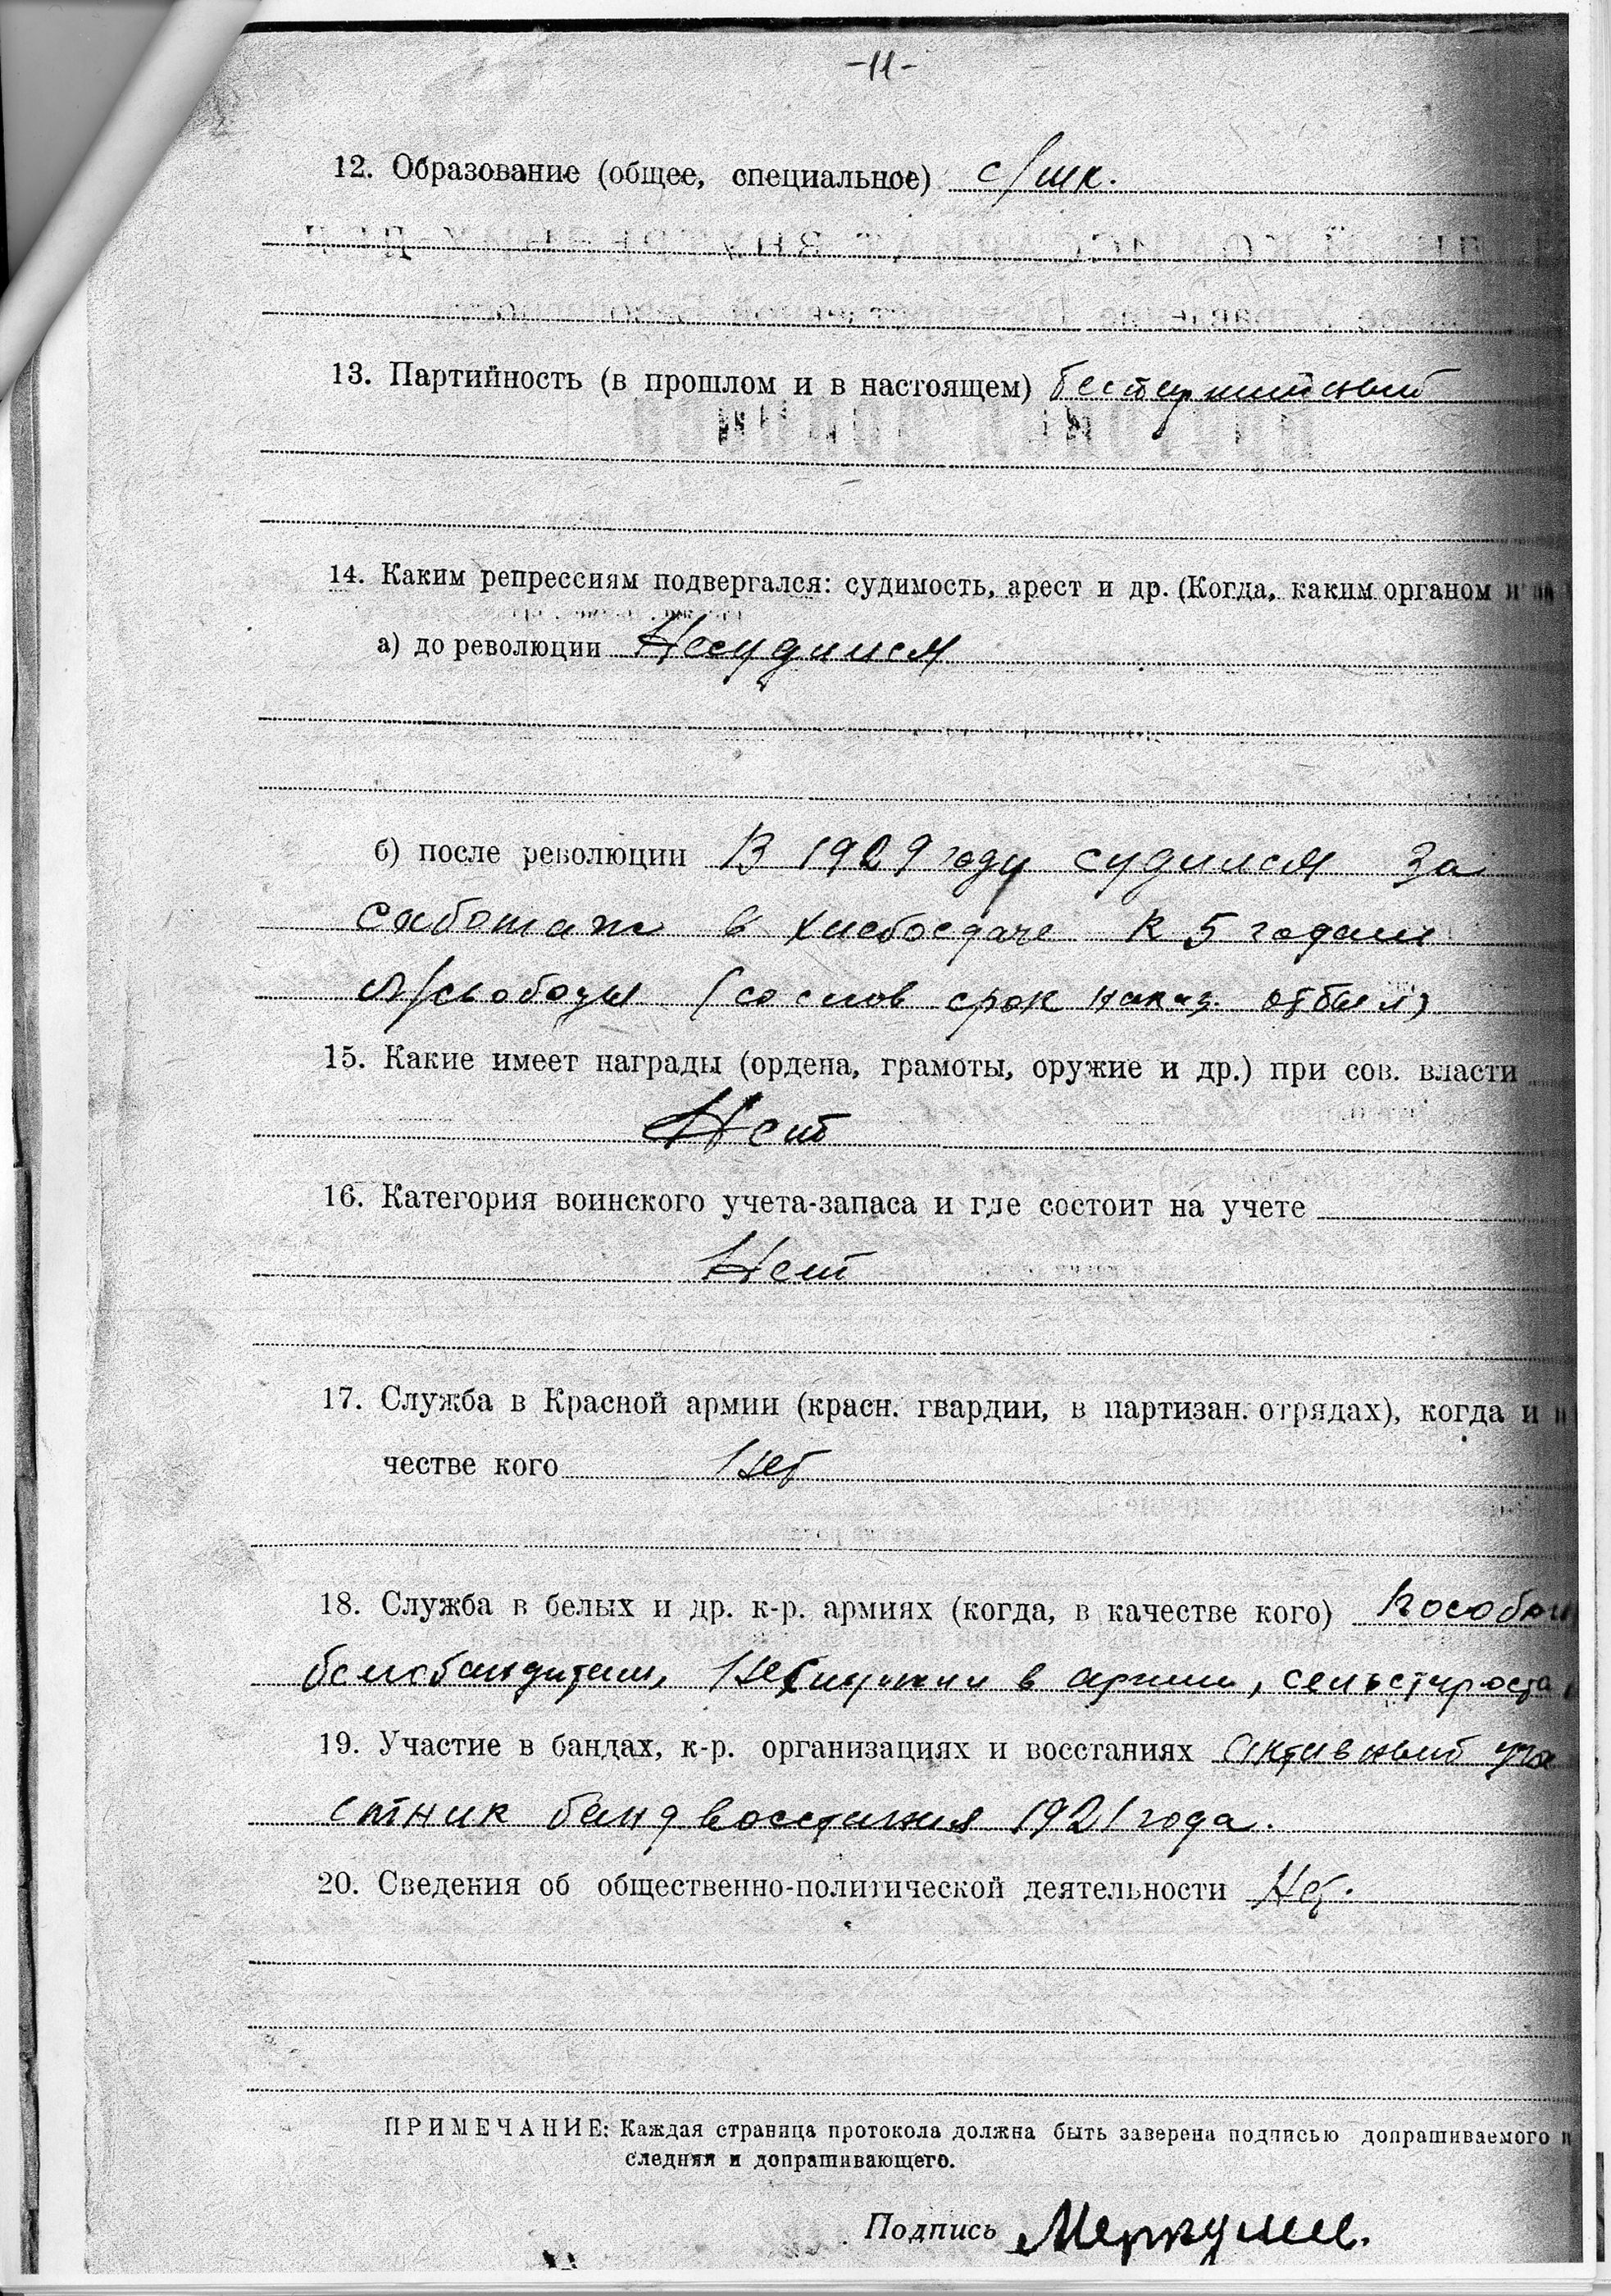 -11-
12. Образование (общее, специальное) с/шк.
13. Партийность (в прошлом и в настоящем) беспартийный
14. Каким репрессиям подвергался: судимость, арест и др. (Когда, каким органом и
а) до революции Несудился
б) после революции В 1929 году судился за
саботаж в хлебосдаче к 5 годам
л/свободы (со слов срок наказ. отбыл)
15. Какие имеет награды (ордена, грамоты, оружие и др.) при сов. власти
Нет
16. Категория воинского учета-запаса и где состоит на учете
Нет
17. Служба в Красной армии (красн. гвардии, в партизан. отрядах), когда и
честве кого Нет
18. Служба в белых и др. к-р. армиях (когда, в качестве кого)
в армии, сельстароста
19. Участие в бандах, к-р. организациях и восстаниях Активный уча
стник банд восстания 1921 года.
20. Сведения об общественно-политической деятельности Нет.
ПРИМЕЧАНИЕ: Каждая страница протокола должна быть заверена подписью допрашиваемого
следняя и допрашивающего.
Подпись